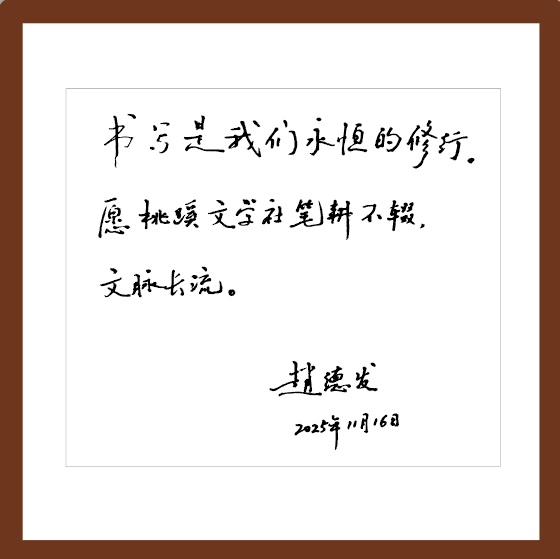 书写是我们永恒的修行。
愿桃蹊文学社笔耕不辍，
文脉长流。
赵德发
2025年11月16日